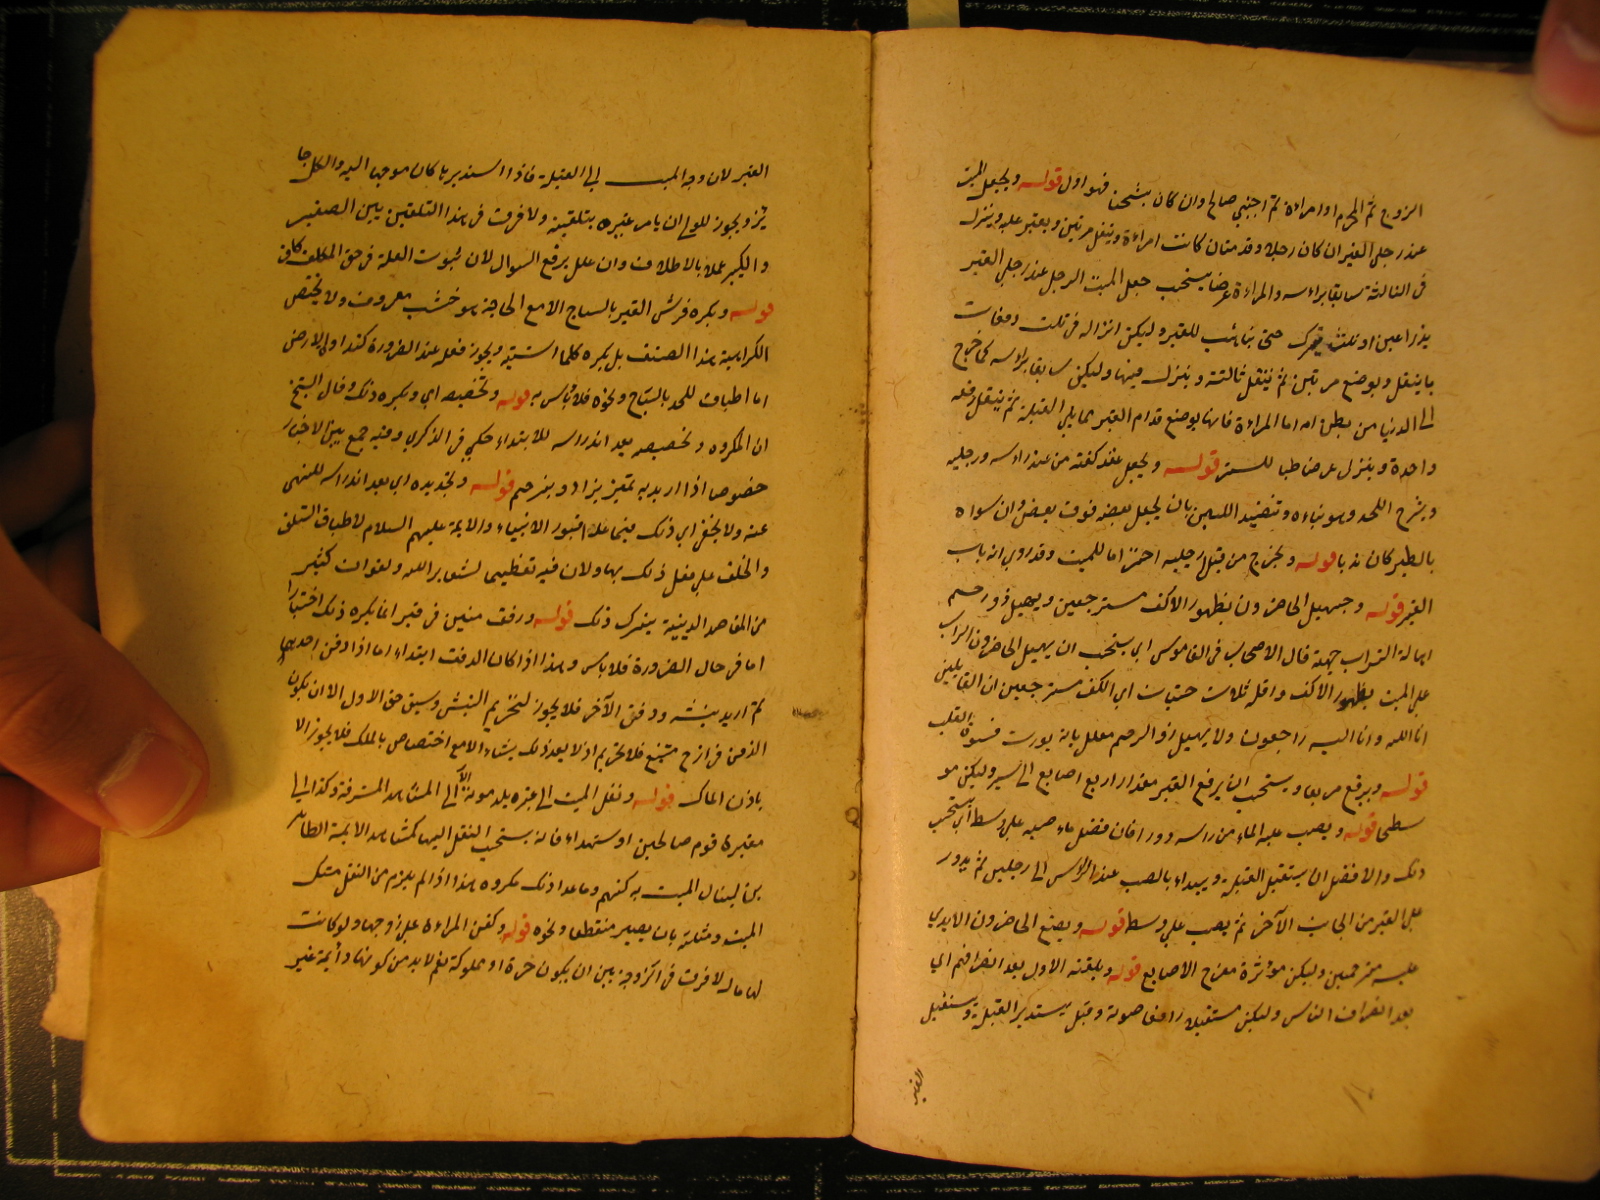 الزوج ثم المحرم او امراءة ثم اجنبي صالح وان كان شيخا فهو اولى قوله ويجعل الميت
عند رجلي القبر ان كان رجلا وقدامه ان كانت امراءة وينقل مرتين ويصبر عليه وينزل
في الثالثة سابقا براسه والمراءة عرضا يستحب جعل الميت الرجل عند رجلي القبر
بذراعين او ثلث حتى يتاهب للقبر وليكن انزاله في ثلث دفعات
بان ينقل ويوضع مرتين ثم ينقل ثالثة وينزل فيها وليكن سابقا براسه كما خرج
الى الدنيا من بطن امه اما المراءة فانها يوضع قدام القبر مما يلي القبلة ثم ينقل دفعة
واحدة وينزل عرضا طلبا للستر قوله ويحل عقد كفنه من عند راسه ورجليه
ويشرج اللحد وهو بناءه وتنضيد اللبن بان يجعل بعضه فوق بعض وان سواه
بالطين كان ندبا قوله ويخرج من قبل رجليه احتراما للميت وقد روي انه باب
القبر قوله ويهيل الحاضرون بظهور الاكف مسترجعين ويهيل ذو رحم
اهالة التراب صبه قال الاصحاب في القاموس اي يستحب ان يهيل الحاضرون التراب
على الميت بظهور الاكف واقله ثلاث حثيات اي الكف مسترجعين اي قايلين
انا لله وانا اليه راجعون ولا يهيل ذو الرحم معلل بانه يورث قسوة القلب
قوله ويرفع مربعا ويستحب ان يرفع القبر مقدار اربع اصابع الى شبر وليكن مو
سطحا قوله ويصب عليه الماء من راسه دورا فان فضل ماء صبه على وسطه اي يستحب
ذلك والافضل ان يستقبل القبلة ويبداء بالصب عند الراس الى رجليه ثم يدور
على القبر من الجانب الآخر ثم يصب على وسطه قوله ويضع الحاضرون الايدي
عليه مترحمين وليكن مؤثرة مفرج الاصابع قوله ويلقنه الولي بعد انصرافهم اي
بعد انصراف الناس وليكن مستقبلا رافعا صوته وقيل يستدبر القبلة ويستقبل
القبر
القبر لان وجه الميت الى القبلة فاذا استدبرها كان موجها اليه والكل جا
يز ويجوز للولي ان يامر غيره بتلقينه ولا فرق في هذا التلقين بين الصغير
والكبير عملا بالاطلاق وان علل برفع السوال لان ثبوت العلة في حق المكلف كاف
قوله ويكره فرش القبر بالساج الا مع الحاجة هو خشب معروف ولا يختص
الكراهية بهذا الصنف بل يكره كلما اشبهه ويجوز فعله عند الضرورة كنداوة الارض
اما اطباق اللحد بالساج ونحوه فلا باس به قوله وتجصيصه اي ويكره ذلك وقال الشيخ
ان المكروه تجصيصه بعد اندراسه لا ابتداء حكي في الذكرى وفيه جمع بين الاخبار
خصوصا اذا اريد به تمييز يزار ويترحم قوله وتجديده اي بعد اندراسه للنهي
عنه ولا يخفى ان ذلك فيما عدا قبور الانبياء والايمة عليهم السلام لاطباق السلف
والخلف على فعل ذلك بها ولان فيه تعظيم لشعاير الله ولفوات كثير
من المقاصد الدينية بترك ذلك قوله ودفن ميتين في قبر انما يكره ذلك اختيارا
اما في حال الضرورة فلا باس وهذا اذا كان الدفن ابتداء اما اذا دفن احدهما
ثم اريد نبشه ودفن الآخر فلا يجوز لتحريم النبش وسبق حق الاول الا ان يكون
الدفن في ازج متسع فلا تحريم اذ لا يعد ذلك نبشا الا مع اختصاص بالملك فلا يجوز الا
باذن المالك قوله ونقل الميت الى غير بلد موته الا الى المشاهد المشرفة وكذا الى
مقبرة قوم صالحين او شهداء فانه يستحب النقل اليها كمشاهد الايمة الطاهر
ين لينال الميت بركتهم وما عدا ذلك مكروه هذا اذا لم يلزم من النقل هتك
الميت ومثلته بان يصير متقطعا ونحوه قوله وكفن المراءة على زوجها ولو كانت
لها مال لا فرق في الزوجة بين ان يكون حرة او مملوكة نعم لا بد من كونها دائمة غير